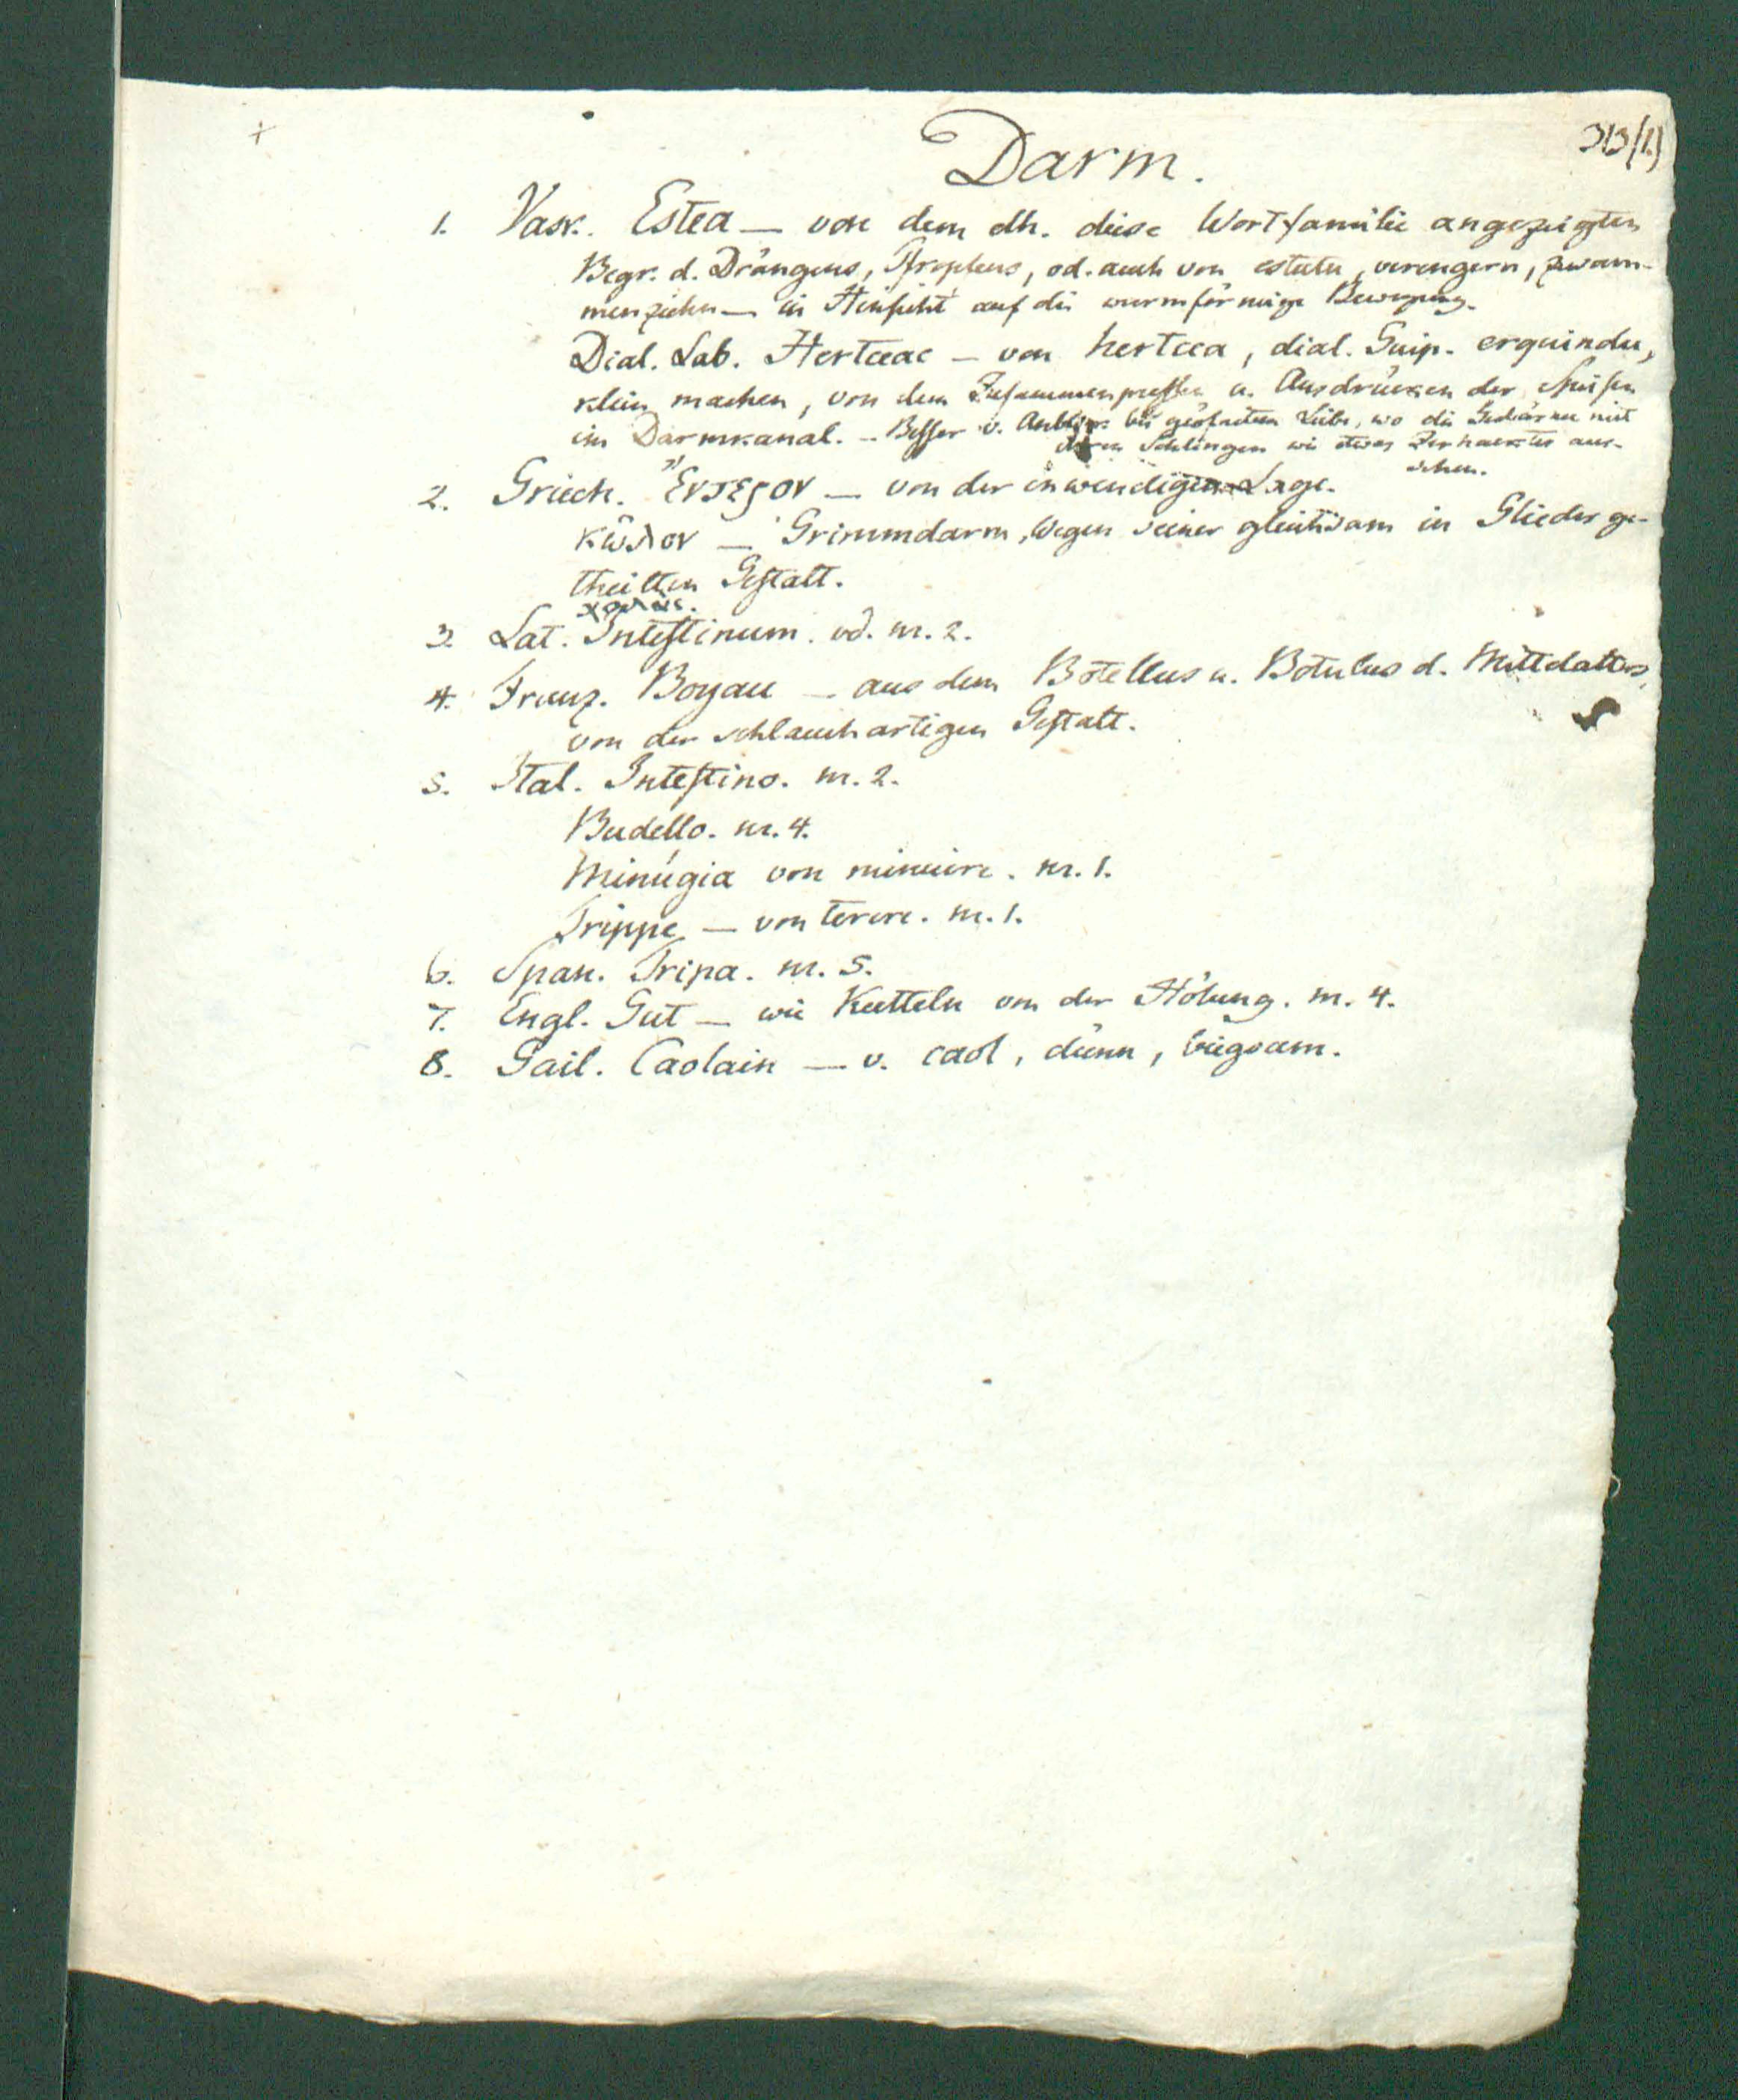 Darm.
313(1.)
1. Vask. Estea — von dem dh. diese Wortfamilie angezeigten
Begr. d. Drängens, Pfropfens, od. auch von estutu, verengern, zusam-
menziehn — in Hinsicht auf die wurmförmige Bewegung.
Dial. Lab. Hertceac — von hertcea, dial. Guip. erquindu,
klein machen, von dem Zusammenpressen u. Ausdrücken der Speisen
im Darmkanal. — Besser v. Anblick bei geöfnetem Leibe, wo die Gedärme mit
ihren Schlingen wie etwas Zerhacktes aus-
sehen.
2. Griech. Ἔντερον — von der inwendigen Lage.
κῶλον — Grimmdarm, wegen seiner gleichsam in Glieder ge-
theilten Gestalt.
χολάς.
3. Lat. Intestinum. vd. nr. 2.
4. Franz. Boyau — aus dem Botellus u. Botulus d. Mittelalters,
von der schlauchartigen Gestalt.
5. Ital. Intestino. nr. 2.
Budello. nr. 4.
Minúgia von minuire. nr. 1.
Trippe — von terere. nr. 1.
6. Span. Tripa. nr. 5.
7. Engl. Gut — wie Kutteln von der Hölung. nr. 4.
8. Gail. Caolain — v. caol, dünn, biegsam.